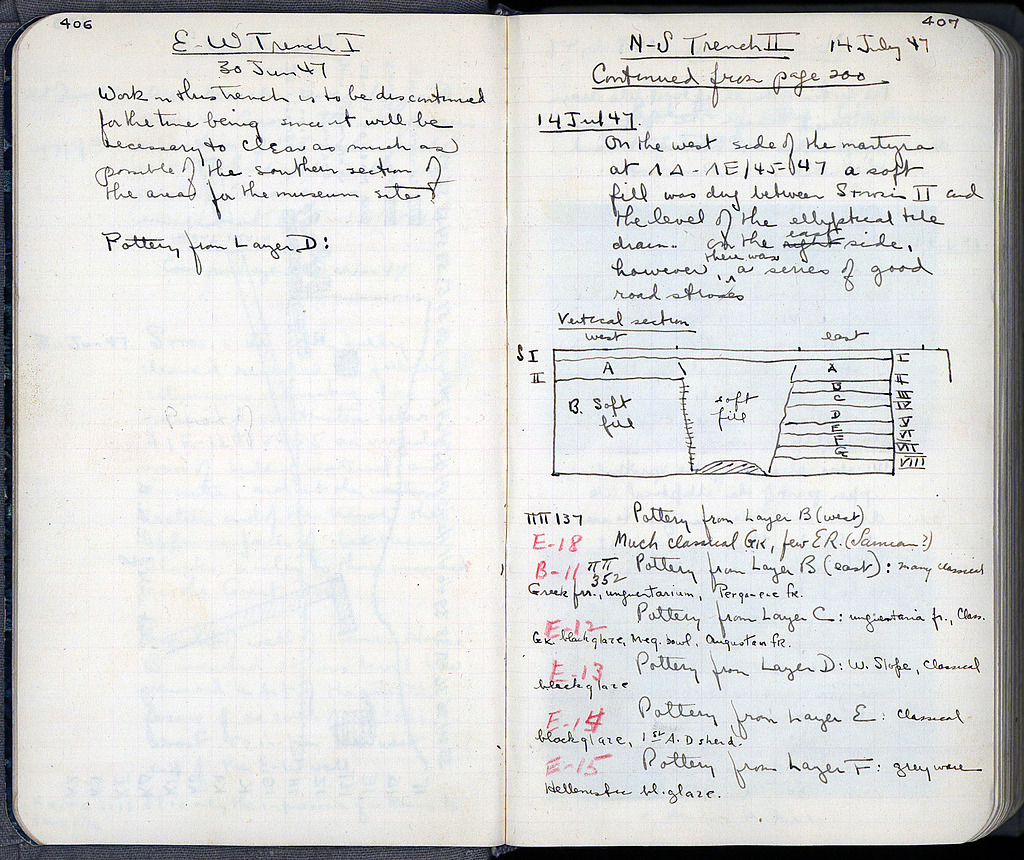 406
E-W Trench I
30 Jun 47
Work in this trench is to be discontinued
for the time being since it will be
necessary to clear as much as
possible of the southern section of
the area for the museum site.
Pottery from Layer D:
407
N-S Trench II 14 July 47
Continued from page 200
14 Jul 47.
On the west side of the martyra
at ΛΔ-ΛΕ/45-47 a soft
fill was dug between Strosis II and
the level of the elliptical tile
drain. On the right east side,
however, there was a series of good
road stroses
Vertical section
west east
S I A A I
II B. Soft fill soft fill B II
C III
D IV
E V
F VI
G VII
VIII
ΠΠ 137 Pottery from Layer B (west)
E-18 Much classical Gk, few ER. (Samian?)
B-11 ΠΠ 352 Pottery from Layer B (east): many classical
Greek frr., unguentarium, Pergamene fr.
E-12 Pottery from Layer C: unguentaria fr., Class.
Gk black glaze, Meg. bowl, Augustan fr.
E-13 Pottery from Layer D: W. Slope, classical
black glaze
E-14 Pottery from Layer E: classical
black glaze, 1st A.D sherd.
E-15 Pottery from Layer F: grey ware
Hellenistic bl. glaze.